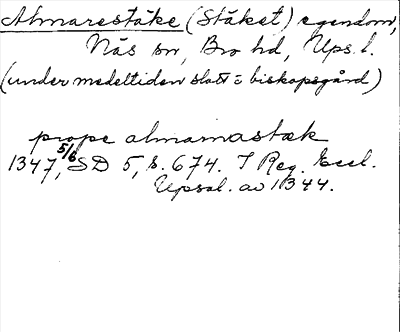 Almarestäke (Stäket) egendom,
Näs sn, Bro hd, Ups. l.
(under medeltiden slott o biskopsgård)
prope almarnastæk
1347, 5/6 SD 5, s. 674. I Reg. Eccl.
Upsal. av 1344.